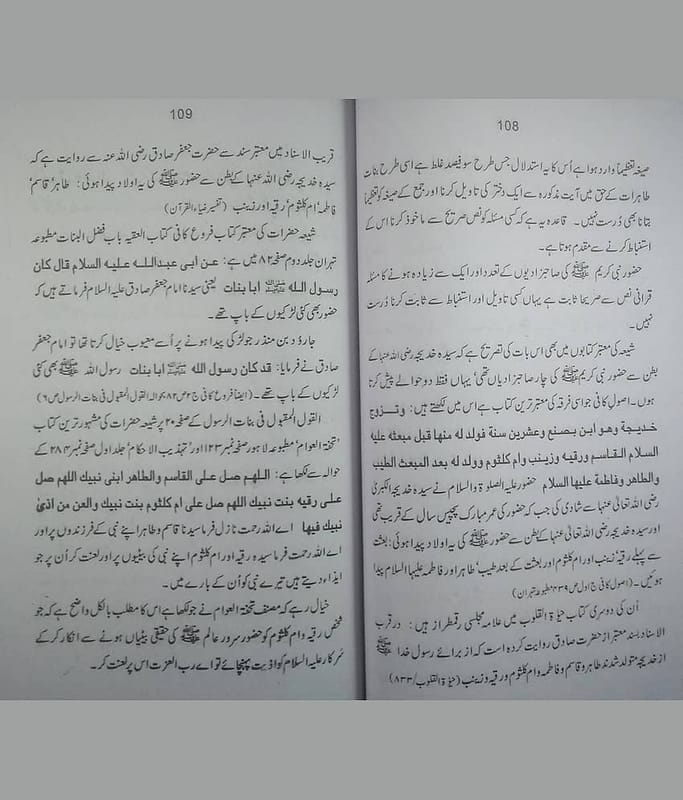 108
صیغہ تعظیماً وارد ہوا ہے اُس کا یہ استدلال جس طرح سو فیصد غلط ہے اسی طرح بنات
طاہرات کے حق میں آیت مذکورہ سے ایک دختر کی تاویل کرنا اور جمع کے صیغہ کو تعظیماً
بتانا بھی دُرست نہیں۔ قاعدہ یہ ہے کہ کسی مسئلہ کو نص صریح سے ماخوذ کرنا اس کے
استنباط کرنے سے مقدم ہوتا ہے۔
حضور نبی کریم ﷺ کی صاحبزادیوں کے تعدد اور ایک سے زیادہ ہونے کا مسئلہ
قرآنی نص سے صریحاً ثابت ہے یہاں کسی تاویل اور استنباط سے ثابت کرنا دُرست
نہیں۔
شیعہ کی معتبر کتابوں میں بھی اس بات کی تصریح ہے کہ سیدہ خدیجہ رضی اللہ عنہا کے
بطن سے حضور نبی کریم ﷺ کی چار صاحبزادیاں تھی، یہاں فقط دو حوالے پیش کرتا
ہوں۔ اصول کافی جو اسی فرقہ کی معتبر ترین کتاب ہے اس میں لکھتے ہیں: وتـــزوج
خدیجة وهو ابن بضع وعشرین سنة فولد له منها قبل مبعثه علیه
السلام القـاسم ورقیه وزینب وام کلثوم وولد له بعد المبعث الطیب
والطاهر وفاطمة علیها السلام حضور علیہ الصلوۃ والسلام نے سیدہ خدیجۃ الکبریٰ
رضی اللہ تعالیٰ عنہا سے شادی کی جب کہ حضور کی عمر مبارک پچیس سال کے قریب تھی
اور سیدہ خدیجہ رضی اللہ تعالیٰ عنہا کے بطن سے حضور ﷺ کی یہ اولاد پیدا ہوئی: بعثت
سے پہلے رقیہ، زینب اور ام کلثوم اور بعثت کے بعد طیب، طاہر اور فاطمہ علیہا السلام پیدا
ہوئیں۔ (اصول کافی ج اول ص ۴۳۹ مطبوعہ تہران)
اُن کی دوسری کتاب حیٰوۃ القلوب میں علامہ مجلسی رقمطراز ہیں: در قرب
الاسناد بسند معتبر از حضرت صادق روایت کردہ است کہ از برائے رسول خدا ﷺ
از خدیجہ متولد شدند طاہر و قاسم و فاطمہ و ام کلثوم و رقیہ و زینب (حیٰوۃ القلوب/ ۸۳۳)
109
قریب الاسناد میں معتبر سند سے حضرت جعفر صادق رضی اللہ عنہ سے روایت ہے کہ
سیدہ خدیجہ رضی اللہ عنہا کے بطن سے حضور ﷺ کی یہ اولاد پیدا ہوئی: طاہر، قاسم،
فاطمہ، ام کلثوم، رقیہ اور زینب (تفسیر ضیاء القرآن)
شیعہ حضرات کی معتبر کتاب فروع کافی کتاب العقیقہ باب فضل البنات مطبوعہ
تہران جلد دوم صفحہ ۸۲ میں ہے: عن ابی عبدالله علیه السلام قال کان
رسول الله ﷺ ابا بنات یعنی سیدنا امام جعفر صادق علیہ السلام فرماتے ہیں کہ
حضور بھی کئی لڑکیوں کے باپ تھے۔
جارود بن منذر جو لڑکی پیدا ہونے پر اُسے معیوب خیال کرتا تھا تو امام جعفر
صادق نے فرمایا: قد کان رسول الله ﷺ ابا بنات رسول اللہ ﷺ بھی کئی
لڑکیوں کے باپ تھے۔ (ایضاً فروع کافی ج ۲ ص ۸۲ بحوالہ القول المقبول فی بنات الرسول ص ۶)
القول المقبول فی بنات الرسول کے صفحہ ۲۰ پر شیعہ حضرات کی مشہور ترین کتاب
'تحفۃ العوام' مطبوعہ لاہور صفحہ نمبر ۱۲۳ اور 'تہذیب الاحکام' جلد اول صفحہ نمبر ۲۸۴ کے
حوالہ سے لکھا ہے: اللهم صل علی القاسم والطاهر ابنی نبیك اللهم صل
علی رقیه بنت نبیك اللهم صل علی ام کلثوم بنت نبیك والعن من اذیٰ
نبیك فیها اے اللہ رحمت نازل فرما سیدنا قاسم و طاہر اپنے نبی کے فرزندوں پر اور
اے اللہ رحمت فرما سیدہ رقیہ اور ام کلثوم اپنے نبی کی بیٹیوں پر اور لعنت کر اُن پر جو
ایذاء دیتے ہیں تیرے نبی کو اُن کے بارے میں۔
خیال رہے کہ مصنف تحفۃ العوام نے جو لکھا ہے اس کا مطلب بالکل واضح ہے کہ جو
شخص رقیہ و ام کلثوم کو حضور سرور عالم ﷺ کی حقیقی بیٹیاں ہونے سے انکار کر کے
سرکار علیہ السلام کو اذیت پہنچائے تو اے رب العزت اس پر لعنت کر۔